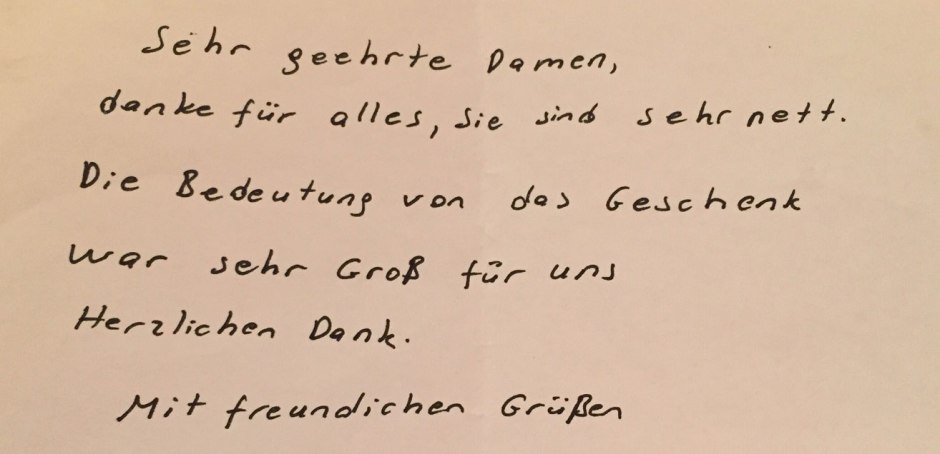 Sehr geehrte Damen,
danke für alles, sie sind sehr nett.
Die Bedeutung von das Geschenk
war sehr Groß für uns
Herzlichen Dank.
Mit freundichen Grüßen